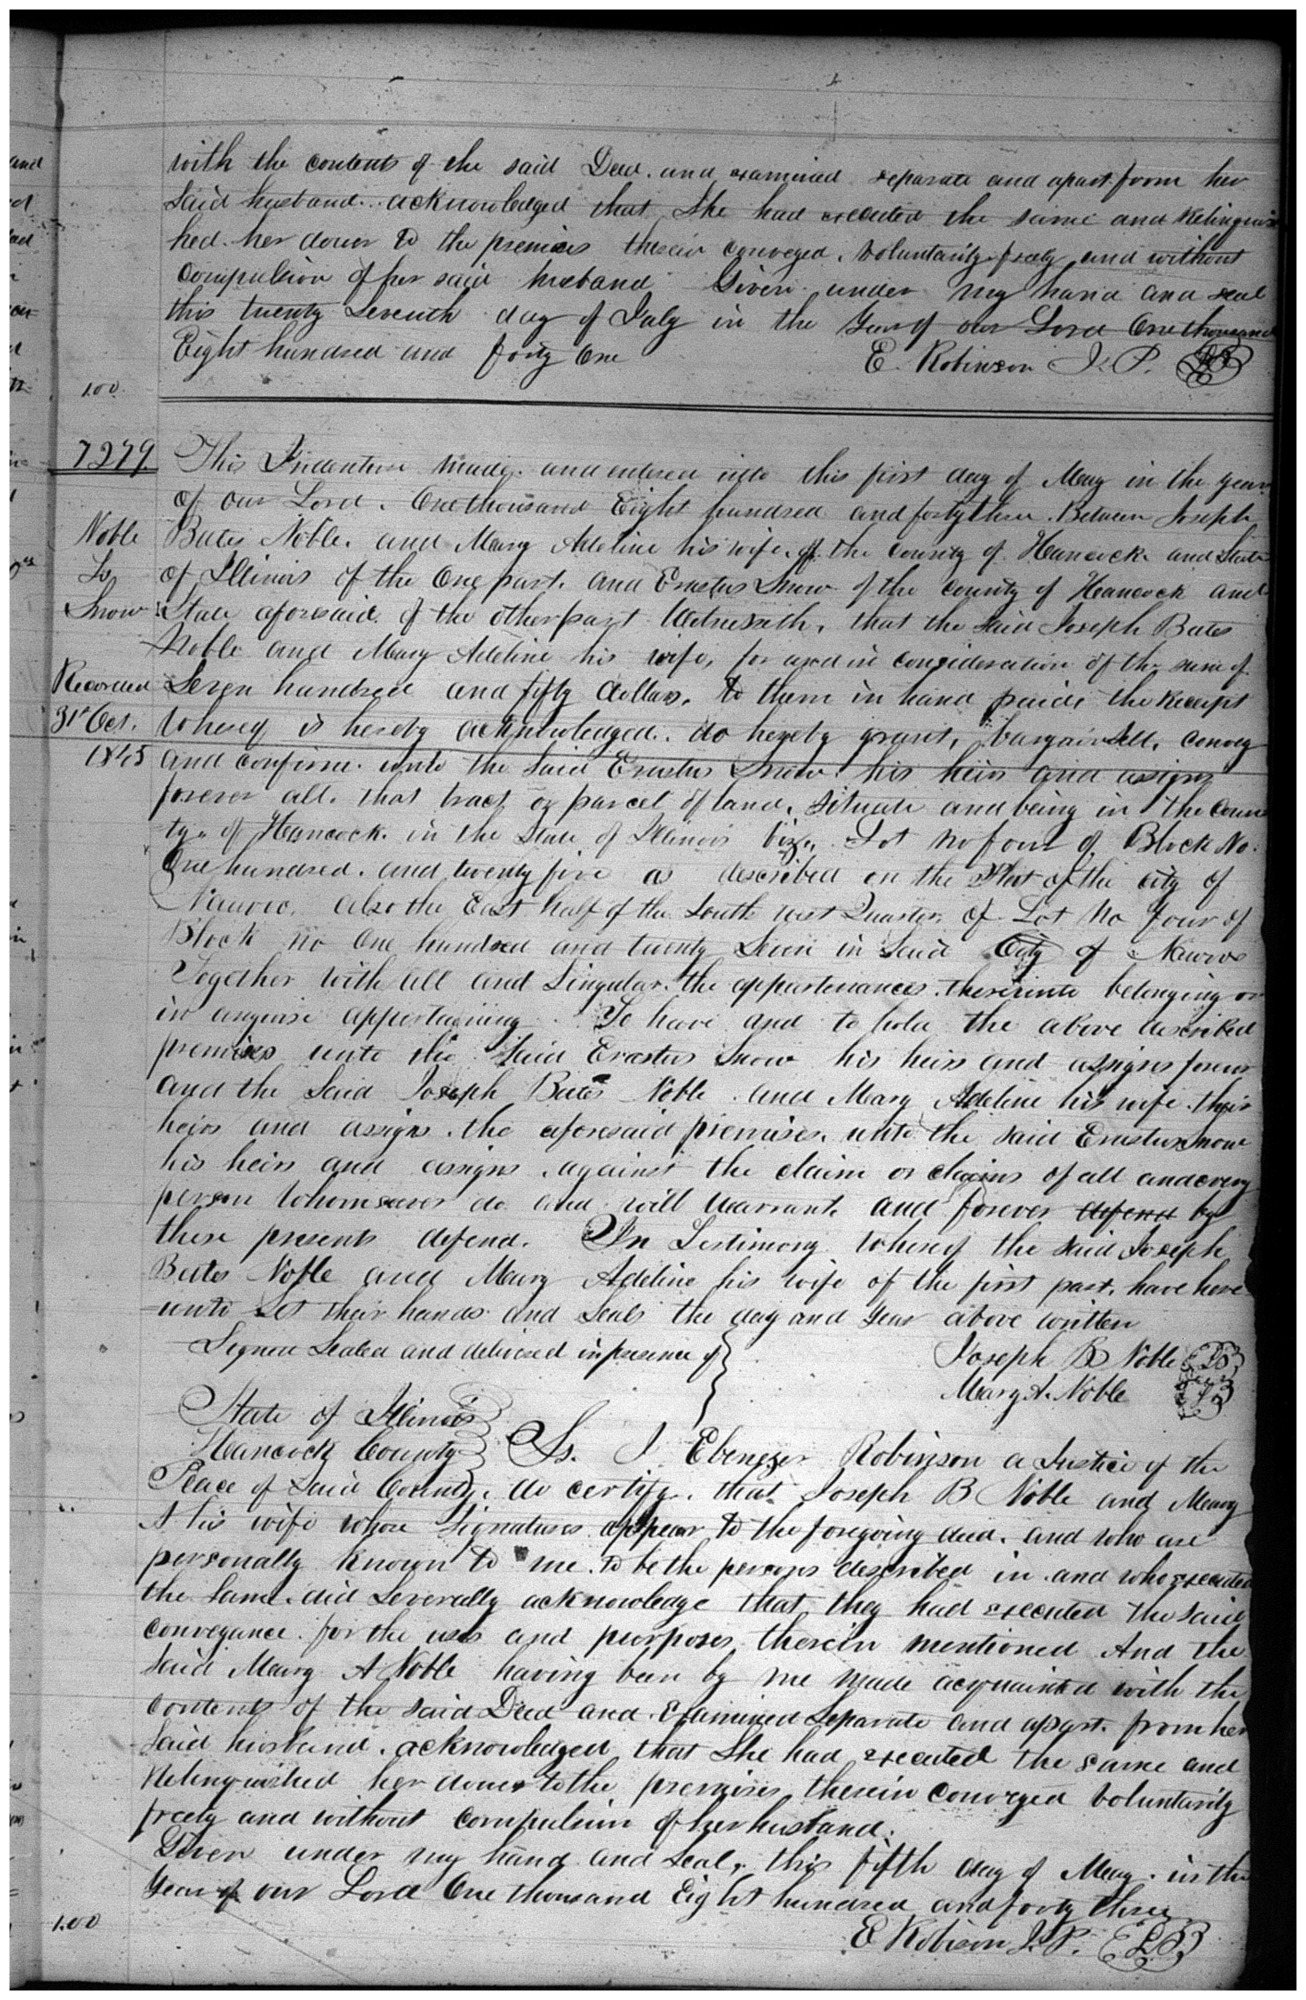 with the contents of the said Deed. and examined separate and apart from her
said husband. acknowledged that She had executed the same and Relinquis
hed her dower to the premises therein conveyed. Voluntarily freely and without
Compulsion of her said husband Given under my hand and seal
this twenty Seventh day of July in the Year of our Lord One thousand
Eight hundred and forty One E. Robinson J. P. LS
1.00
7279 This Indenture made. and entered into this first day of May in the year
of our Lord. One thousand Eight hundred and forty three. Between Joseph
Noble Bates Noble. and Mary Adeline his wife. of the County of Hancock and State
To of Illinois of the One part. and Erastus Snow of the county of Hancock and
Snow State aforesaid. of the other part Witnesseth. that the Said Joseph Bates
Noble and Mary Adeline his wife, for and in consideration of the sum of
Recorded Seven hundred and fifty dollars. to them in hand paid; the Receipt
31st Oct. Whereof is hereby acknowledged. do hereby grant, bargain Sell. convey
1845 and confirm. unto the Said Erastus Snow his heirs and assigns
forever all. that tract or parcel of land. Situate and being in the Coun
ty. of Hancock. in the State of Illinois viz. Lot No four of Block No.
One hundred. and twenty five as described on the Plot of the city of
Nauvoo. also the East half of the South west Quarter of Lot No four of
Block No One hundred and twenty Seven in Said City of Nauvoo
Together with all and Singular. the appurtenances. thereunto belonging or
in anywise appertaining. To have and to hold the above described
premises unto the Said Erastus Snow his heirs and assigns forever
and the Said Joseph Bates Noble and Mary Adeline his wife. their
heirs and assigns. the aforesaid premises. unto the said Erastus Snow
his heirs and assigns. against the claim or claims of all and every
person Whomsoever do and will Warrant and forever defend by
these presents defend. In Testimony Whereof the said Joseph
Bates Noble and Mary Adeline his wife of the first part. have here
unto set their hands and Seals the day and year above written
Signed Sealed and delivered in presence of Joseph B Noble LS
Mary A. Noble LS
State of Illinois
Hancock County Ss. I Ebenezer Robinson a Justice of the
Peace of Said County. do certify. that Joseph B Noble and Mary
A his wife whose Signatures appear to the foregoing deed. and who are
personally known to me. to be the persons described in. and who executed
the Same. did Severally acknowledge that they had executed the said
conveyance. for the uses and purposes therein mentioned And the
Said Mary A Noble having been by me made acquainted with the
Contents of the Said Deed and. Examined Separate and apart. from her
Said husband. acknowledged that She had executed the same and
Relinquished her dower to the premises therein conveyed voluntarily
freely and without compulsion of her husband.
Given under my hand and Seal, this fifth day of May. in the
Year of our Lord One thousand Eight hundred and forty three
1.00 E Robison J. P. LS